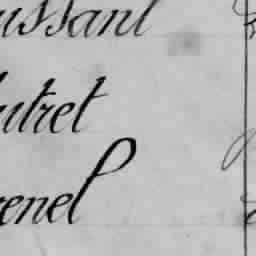 ussant
utret
enel